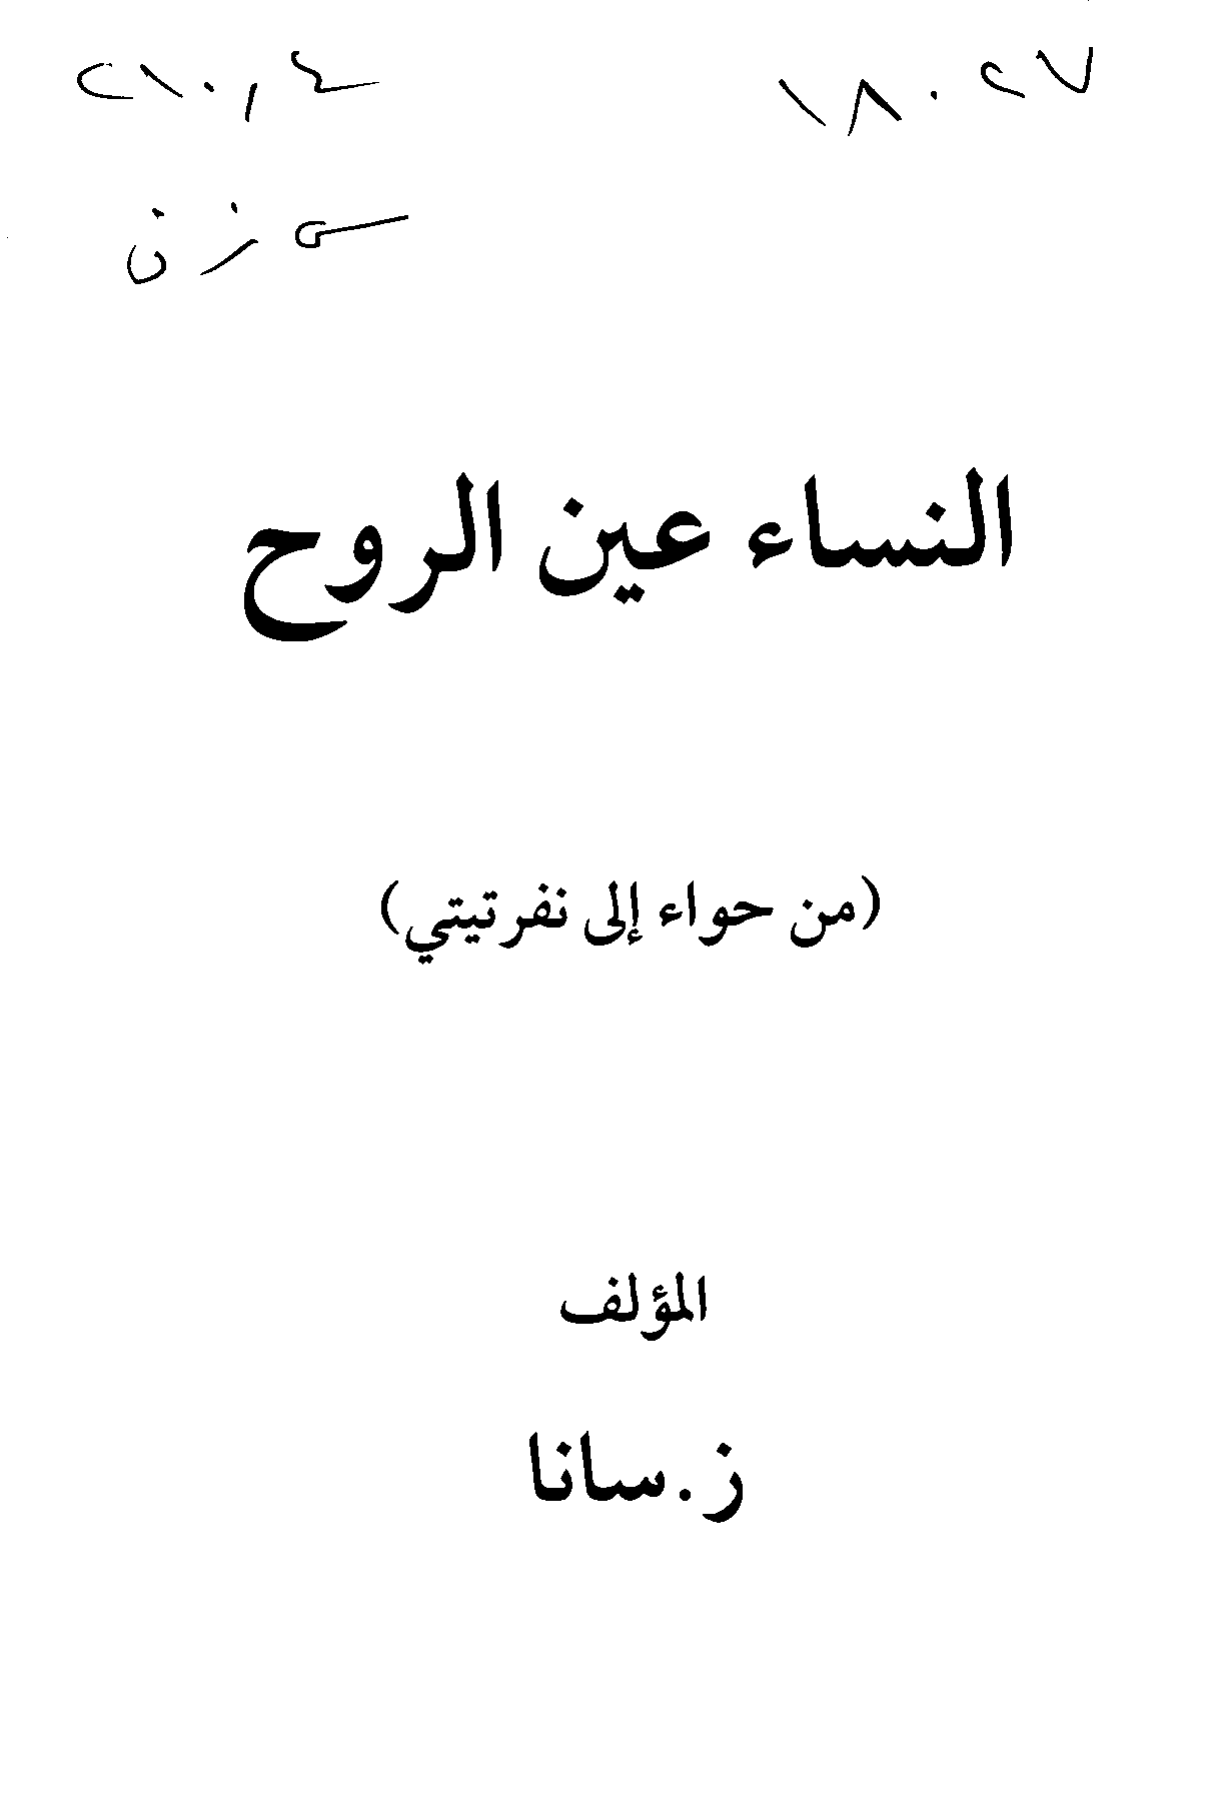 ١٨٠٢٧
٢١٠,٤
س ز ن
النساء عين الروح
(من حواء إلى نفرتيتي)
المؤلف
ز.سانا